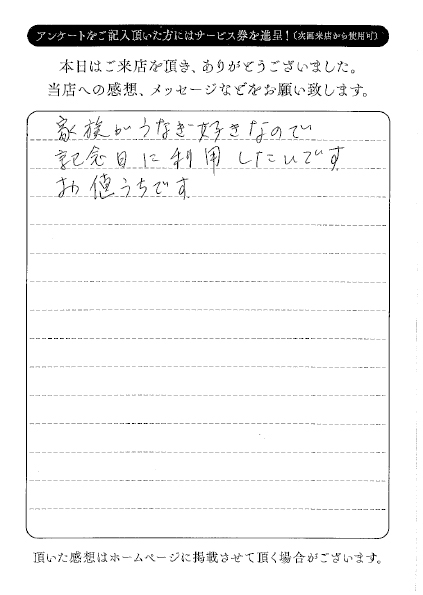 アンケートをご記入頂いた方にはサービス券を進呈!(次回来店から使用可)
本日はご来店を頂き、ありがとうございました。
当店への感想、メッセージなどをお願い致します。
家族がうなぎ好きなので
記念日に利用したいです
お値うちです
頂いた感想はホームページに掲載させて頂く場合がございます。